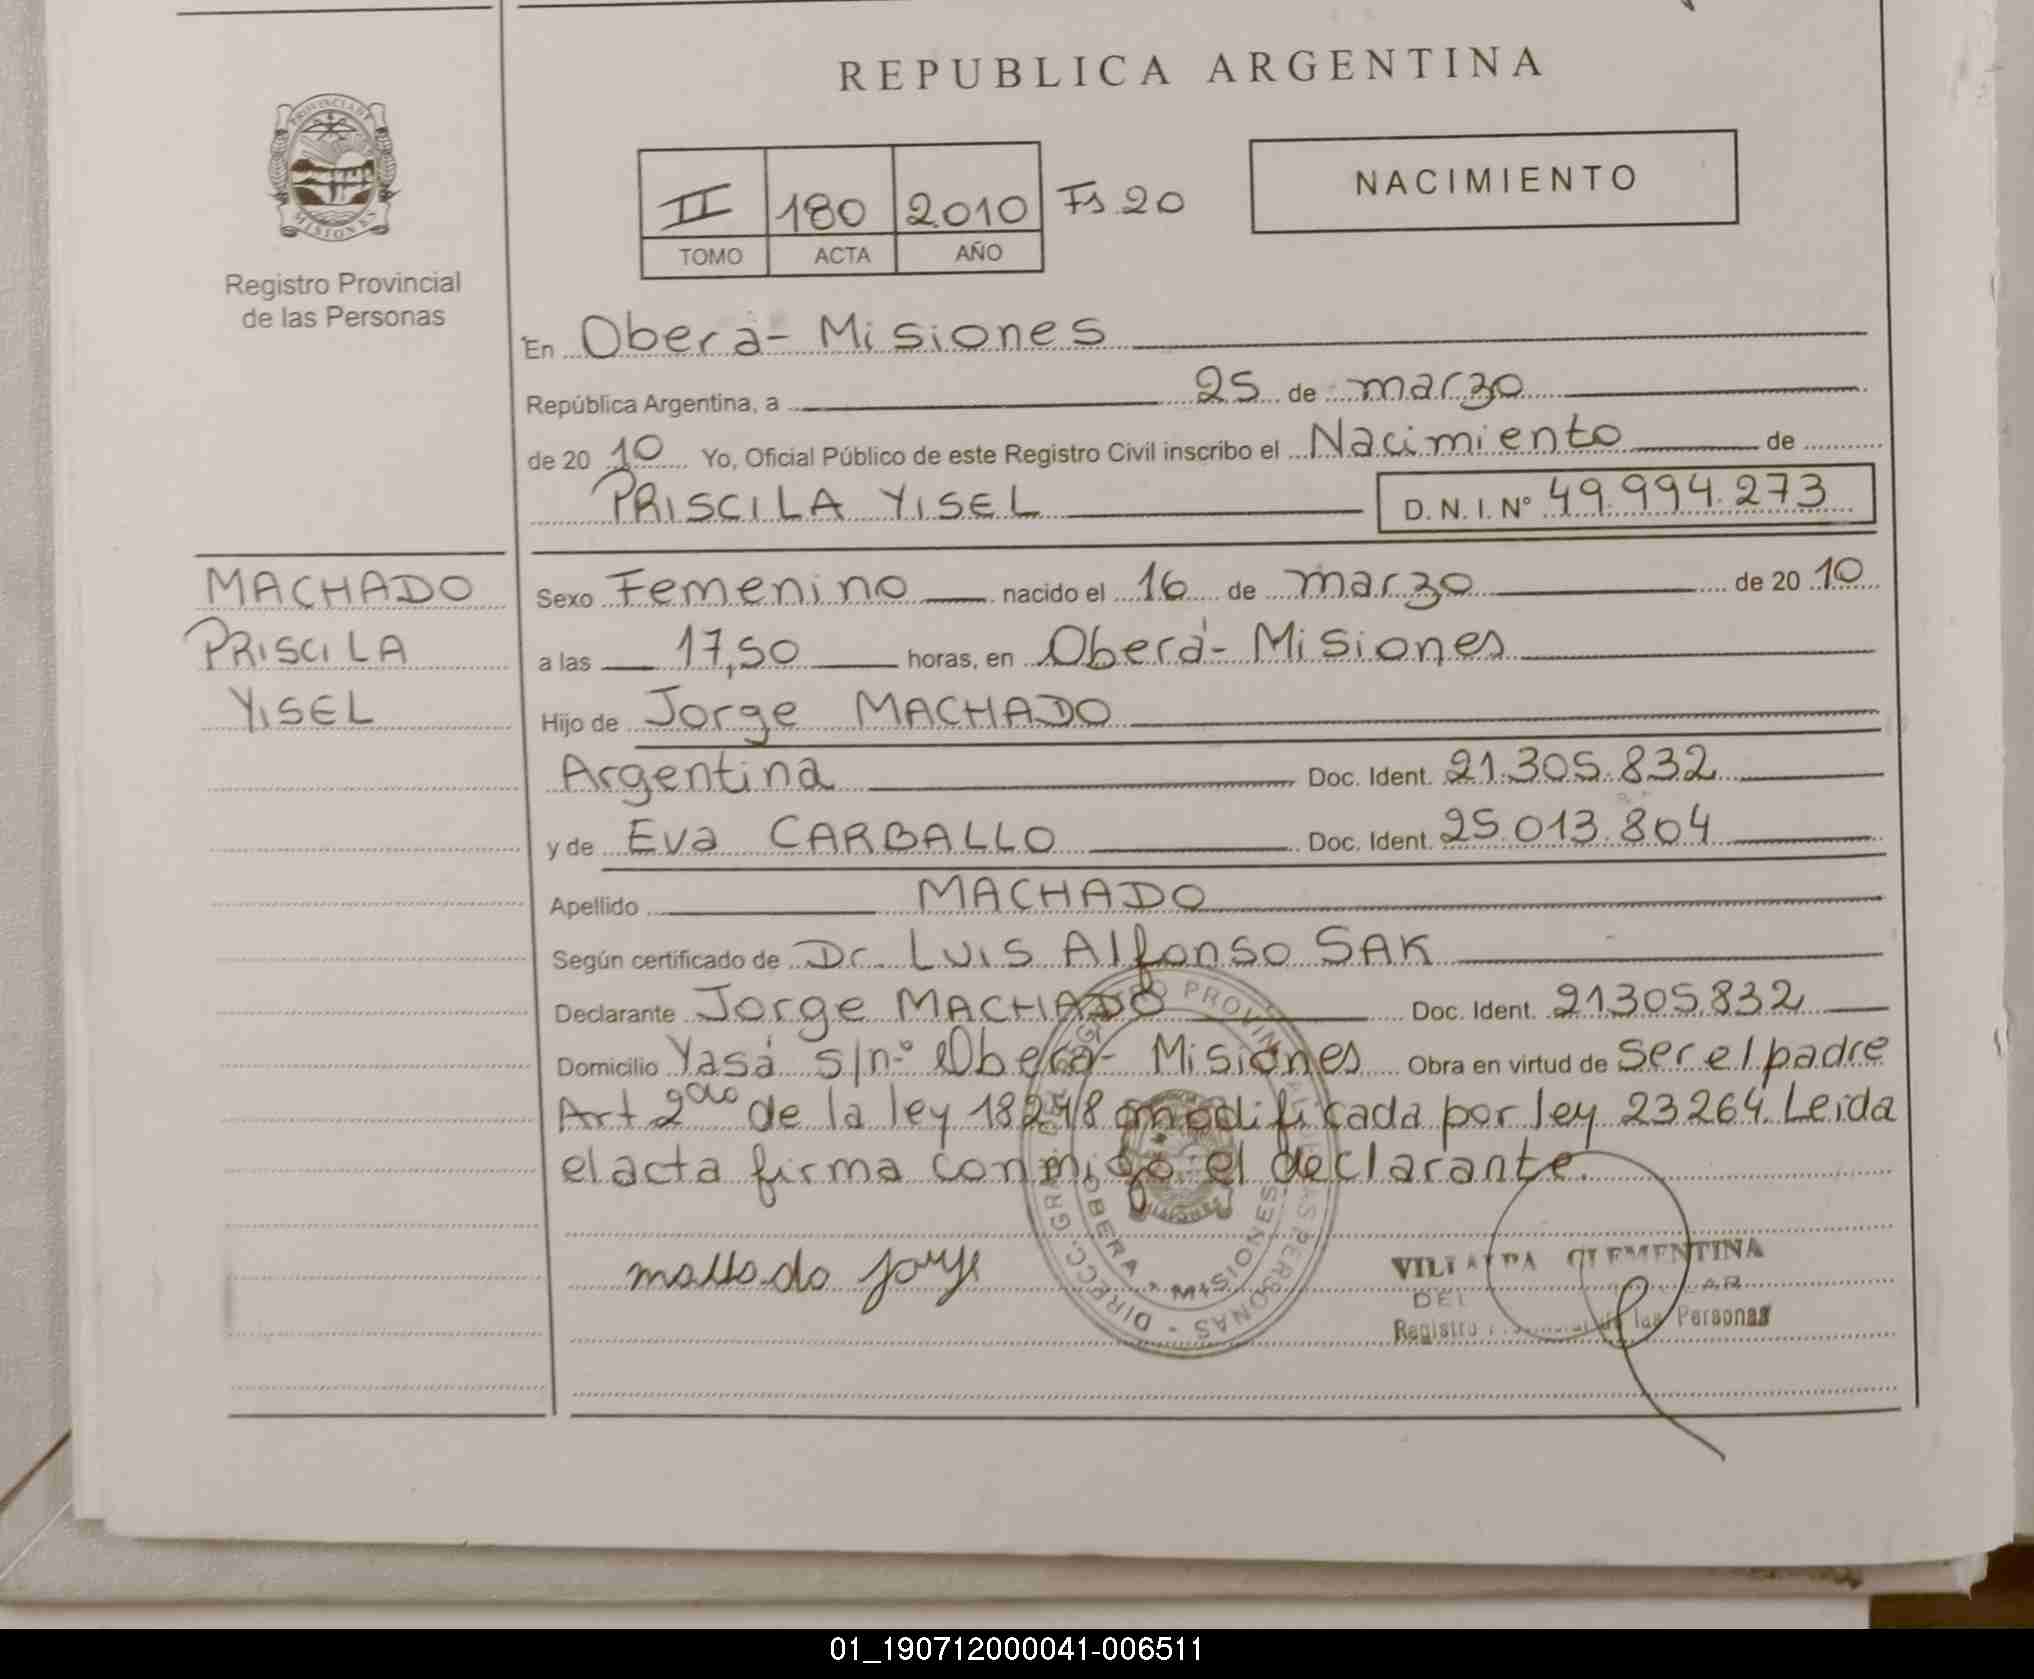 REPUBLICA ARGENTINA
PROVINCIA DE
MISIONES
Registro Provincial
de las Personas
II 180 2010 Fs 20
TOMO ACTA AÑO
NACIMIENTO
En Oberá - Misiones
República Argentina, a 25 de marzo
de 20 10 Yo, Oficial Público de este Registro Civil inscribo el Nacimiento de
PRISCILA YISEL D. N. I. Nº 49.994.273
MACHADO
PRISCILA
YISEL
Sexo Femenino nacido el 16 de marzo de 20 10
a las 17,50 horas, en Oberá - Misiones
Hijo de Jorge MACHADO
Argentina Doc. Ident. 21.305.832
y de Eva CARBALLO Doc. Ident. 25.013.804
Apellido MACHADO
Según certificado de Dr. Luis Alfonso SAK
Declarante Jorge MACHADO Doc. Ident. 21305.832
Domicilio Yasá s/n.º Oberá - Misiones Obra en virtud de ser el padre
Art 2do de la ley 18248 modificada por ley 23264. Leida
el acta firma conmigo el declarante.
machado jorge
OBERA * MISIONES
VILLALBA CLEMENTINA
DEL
Registro de las Personas
01_190712000041-006511